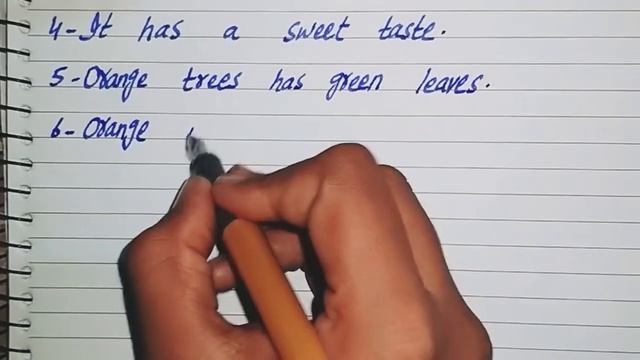 4-It has a sweet taste.
5-Orange trees has green leaves.
6-Orange